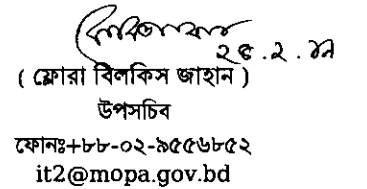 ২৫.২.১৯
( ফ্লোরা বিলকিস জাহান )
উপসচিব
ফোনঃ+৮৮-০২-৯৫৫৬৮৫২
it2@mopa.gov.bd